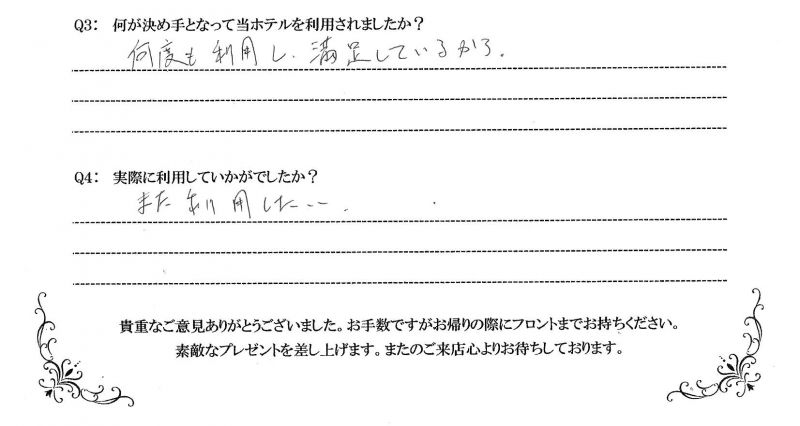 Q3: 何が決め手となって当ホテルを利用されましたか？
何度も利用し、満足しているから。
Q4: 実際に利用していかがでしたか？
また利用したい。
貴重なご意見ありがとうございました。お手数ですがお帰りの際にフロントまでお持ちください。
素敵なプレゼントを差し上げます。またのご来店心よりお待ちしております。